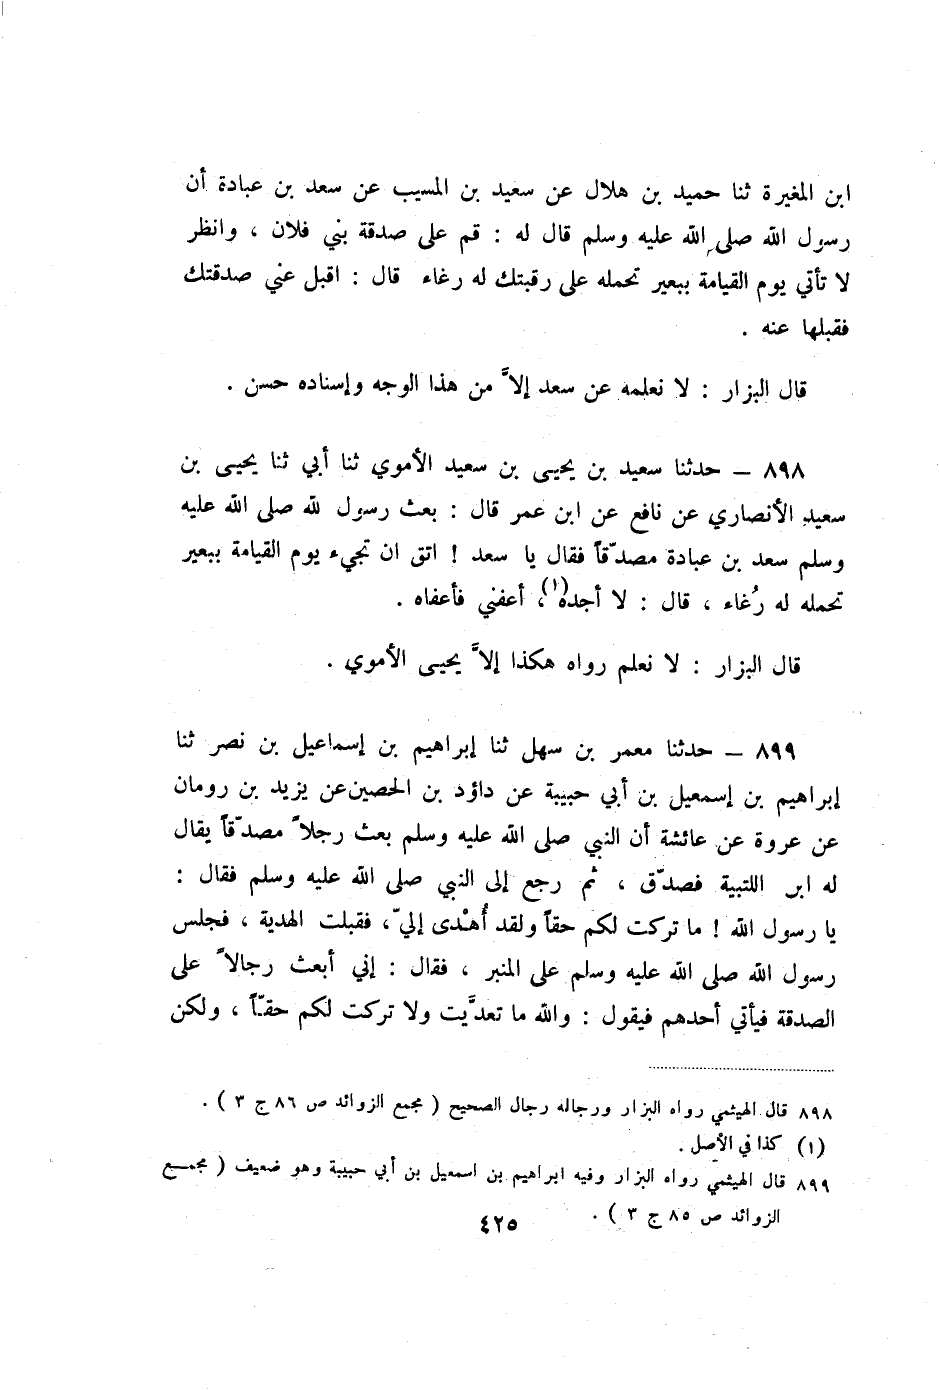 ابن المغيرة ثنا حميد بن هلال عن سعيد بن المسيب عن سعد بن عبادة أن
رسول الله صلى الله عليه وسلم قال له : قم على صدقة بني فلان ، وانظر
لا تأتي يوم القيامة ببعير تحمله على رقبتك له رغاء قال : اقبل عني صدقتك
فقبلها عنه .
قال البزار : لا نعلمه عن سعد إلاَّ من هذا الوجه وإسناده حسن .
٨٩٨ – حدثنا سعيد بن يحيى بن سعيد الأموي ثنا أبي ثنا يحيى بن
سعيد الأنصاري عن نافع عن ابن عمر قال : بعث رسول لله صلى الله عليه
وسلم سعد بن عبادة مصدّقاً فقال يا سعد ! اتق ان تجيء يوم القيامة ببعير
تحمله له رُغاء ، قال : لا أجده(١)، أعفني فأعفاه .
قال البزار : لا نعلم رواه هكذا إلاَّ يحيى الأموي .
٨٩٩ – حدثنا معمر بن سهل ثنا إبراهيم بن إسماعيل بن نصر ثنا
إبراهيم بن إسمعيل بن أبي حبيبة عن داؤد بن الحصين عن يزيد بن رومان
عن عروة عن عائشة أن النبي صلى الله عليه وسلم بعث رجلاً مصدّقاً يقال
له ابن اللتبية فصدّق ، ثم رجع إلى النبي صلى الله عليه وسلم فقال :
يا رسول الله ! ما تركت لكم حقاً ولقد أُهْدى إليّ ، فقبلت الهدية ، فجلس
رسول الله صلى الله عليه وسلم على المنبر ، فقال : إني أبعث رجالاً على
الصدقة فيأتي أحدهم فيقول : والله ما تعدَّيت ولا تركت لكم حقّاً ، ولكن
٨٩٨ قال الهيثمي رواه البزار ورجاله رجال الصحيح ( مجمع الزوائد ص ٨٦ ج ٣ ) .
(١) كذا في الأصل .
٨٩٩ قال الهيثمي رواه البزار وفيه ابراهيم بن اسمعيل بن أبي حبيبة وهو ضعيف ( مجمع
الزوائد ص ٨٥ ج ٣ ) .
٤٢٥